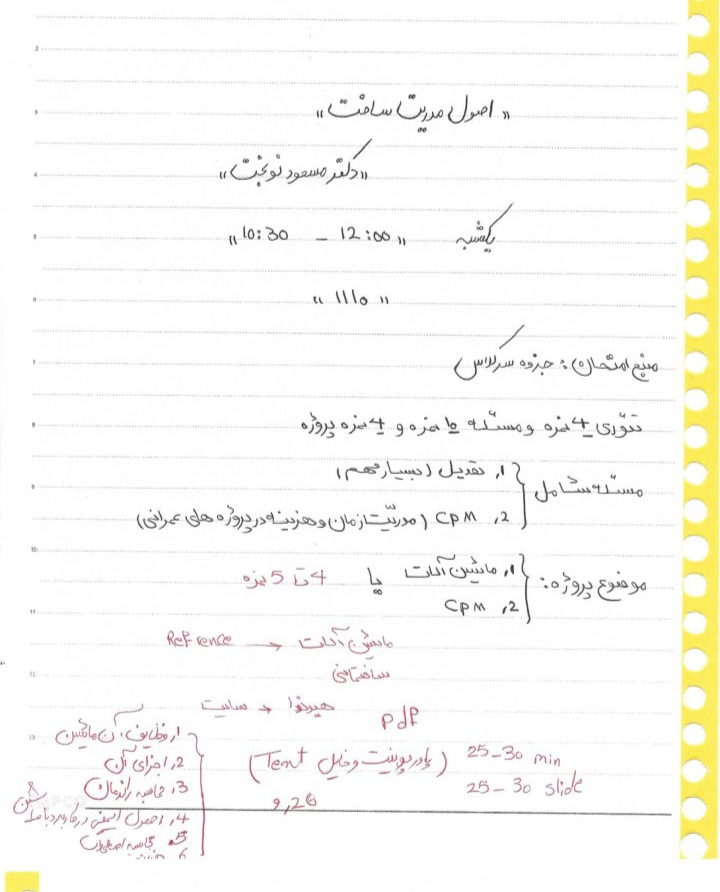 « اصول مدیریت ساخت »
« دکتر مسعود نوبخت »
یکشنبه « 12:00 – 10:30 »
« 1110 »
منبع امتحان: جزوه سرکلاس
تئوری 4 نمره و مسئله 10 نمره و 4 نمره پروژه
مسئله شامل
1. تعدیل (بسیار مهم)
2. CPM (مدیریت زمان و هزینه در پروژه های عمرانی)
موضوع پروژه:
1. ماشین آلات یا 4 تا 5 نمره
2. CPM
ماشین آلات → Reference
ساختمانی
سایت
pdf
25-30 min
25-30 slide
(پاورپوینت و فایل Text)
9,26
1. وظایف آن ماشین
2. اجزای آن
3. محاسبه راندمان
4. اصول ایمنی در کاربرد با ماشین
5. محاسبه استهلاک
6.
2
3
4
5
6
7
8
9
10
11
12
13